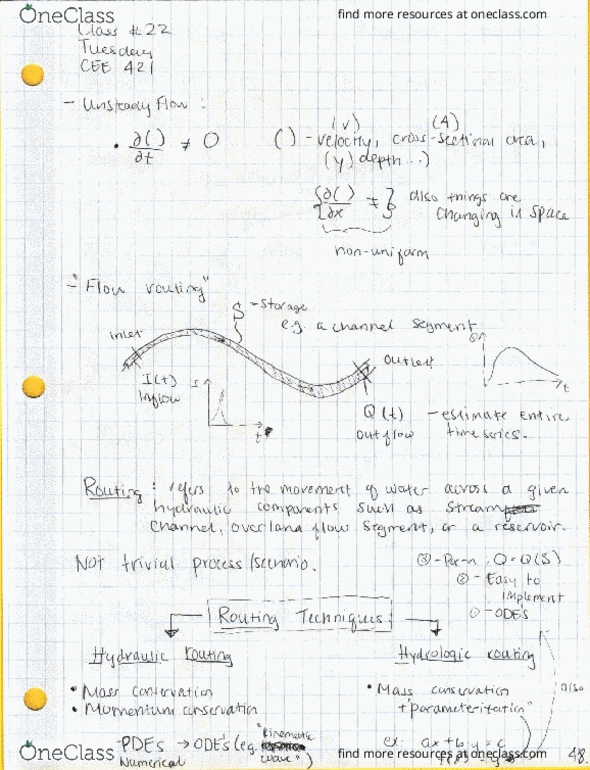 OneClass
find more resources at oneclass.com
Class #22
Tuesday
CEE 421
- Unsteady Flow :
• ∂( )/∂t ≠ 0
( ) - velocity, cross-sectional area,
(V) (A)
(y) depth...)
{∂( )/∂x ≠ } also things are
changing in space
non-uniform
- "Flow routing"
S - Storage
e.g. a channel segment
inlet
Outlet
Q
t
I(t)
Inflow
I
t
Q(t) - estimate entire
Outflow time series.
Routing : refers to the movement of water across a given
hydraulic components such as stream
channel, overland flow segment, or a reservoir.
Not trivial process/scenario.
③ - Q = Q(S)
② - Easy to
implement
① - ODE's
Routing Techniques
Hydraulic routing
Hydrologic routing
• Mass conservation
• Momentum conservation
• Mass conservation
+ "parameterization"
also
PDEs → ODE's (e.g. "kinematic
wave")
Numerical
ex: ax + by = c
OneClass
find more resources at oneclass.com
48.